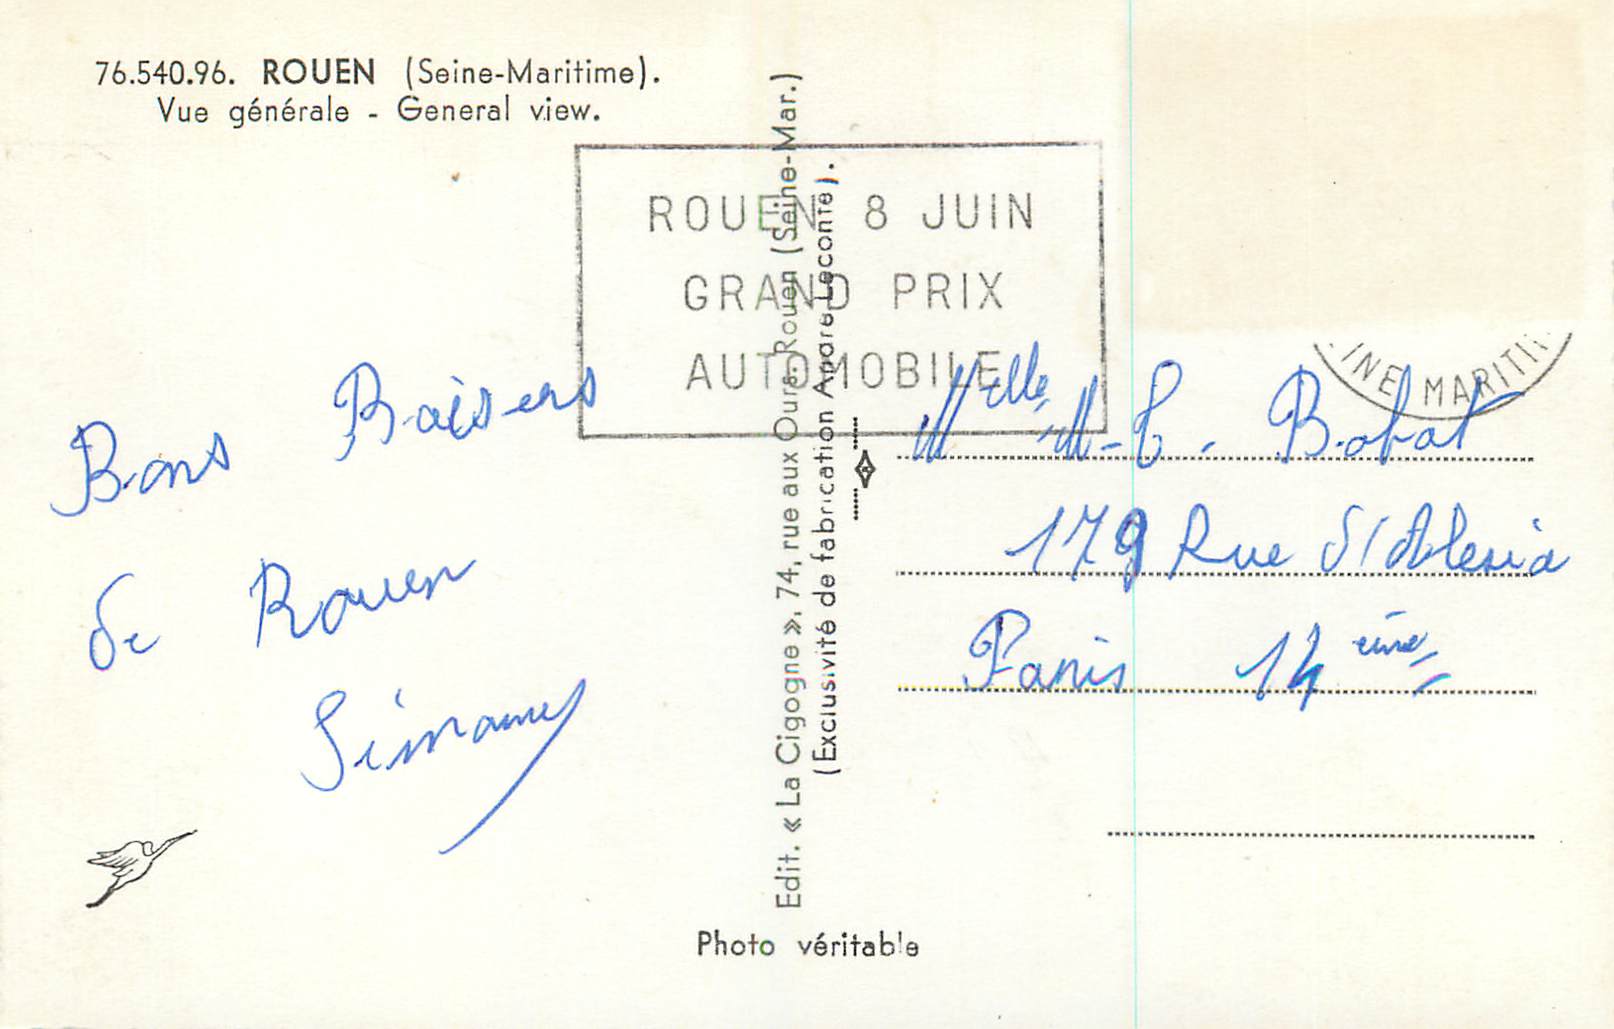 76.540.96. ROUEN (Seine-Maritime).
Vue générale - General view.
ROUEN 8 JUIN
GRAND PRIX
AUTOMOBILE
INE MARITI
Bons Baisers
de Rouen
Edit. « La Cigogne », 74, rue aux Ours, Rouen (Seine-Mar.)
(Exclusivité de fabrication André Leconte).
Melle M-C. Bobat
179 Rue d'Alesia
Paris 14 ème
Photo véritable